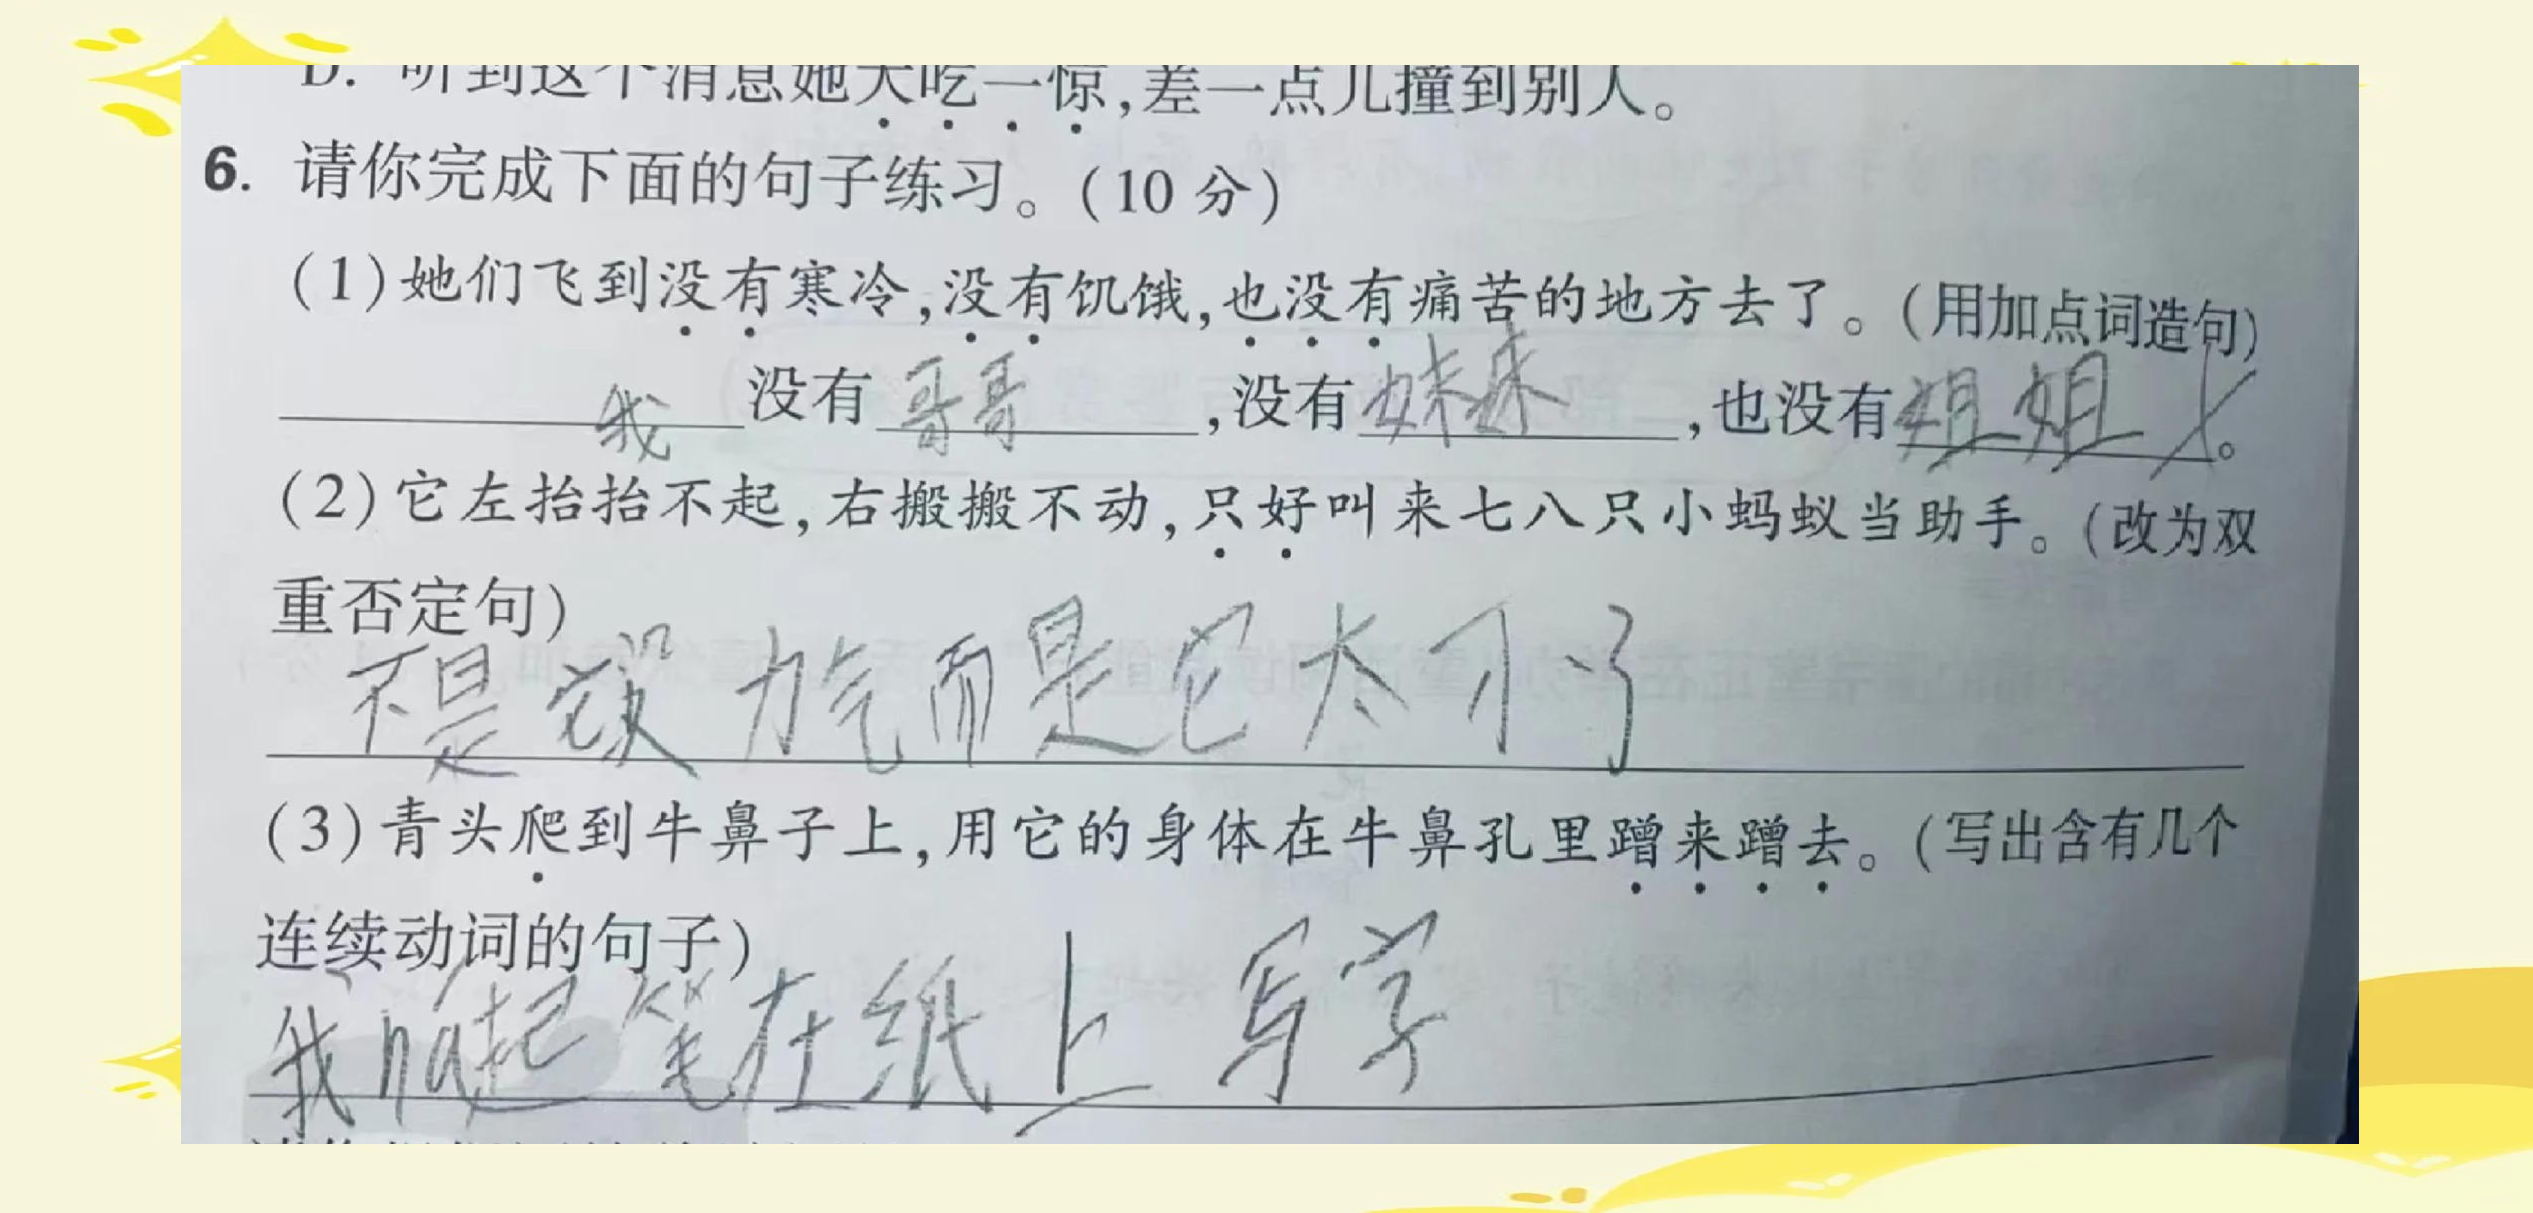 D. 听到这个消息她大吃一惊,差一点儿撞到别人。
6. 请你完成下面的句子练习。(10 分)
(1)她们飞到没有寒冷,没有饥饿,也没有痛苦的地方去了。(用加点词造句)
我 没有 哥哥 ,没有 妹妹 ,也没有 姐姐 。
(2)它左抬抬不起,右搬搬不动,只好叫来七八只小蚂蚁当助手。(改为双
重否定句)
不是它没力气而是它太小了
(3)青头爬到牛鼻子上,用它的身体在牛鼻孔里蹭来蹭去。(写出含有几个
连续动词的句子)
我na起笔在纸上写字